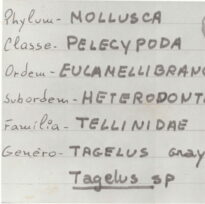 Phylum - MOLLUSCA
Classe - PELECYPODA
Ordem - EULAMELLIBRANC
Subordem - HETERODONTA
Família - TELLINIDAE
Genéro - TAGELUS Gray
Tagelus sp